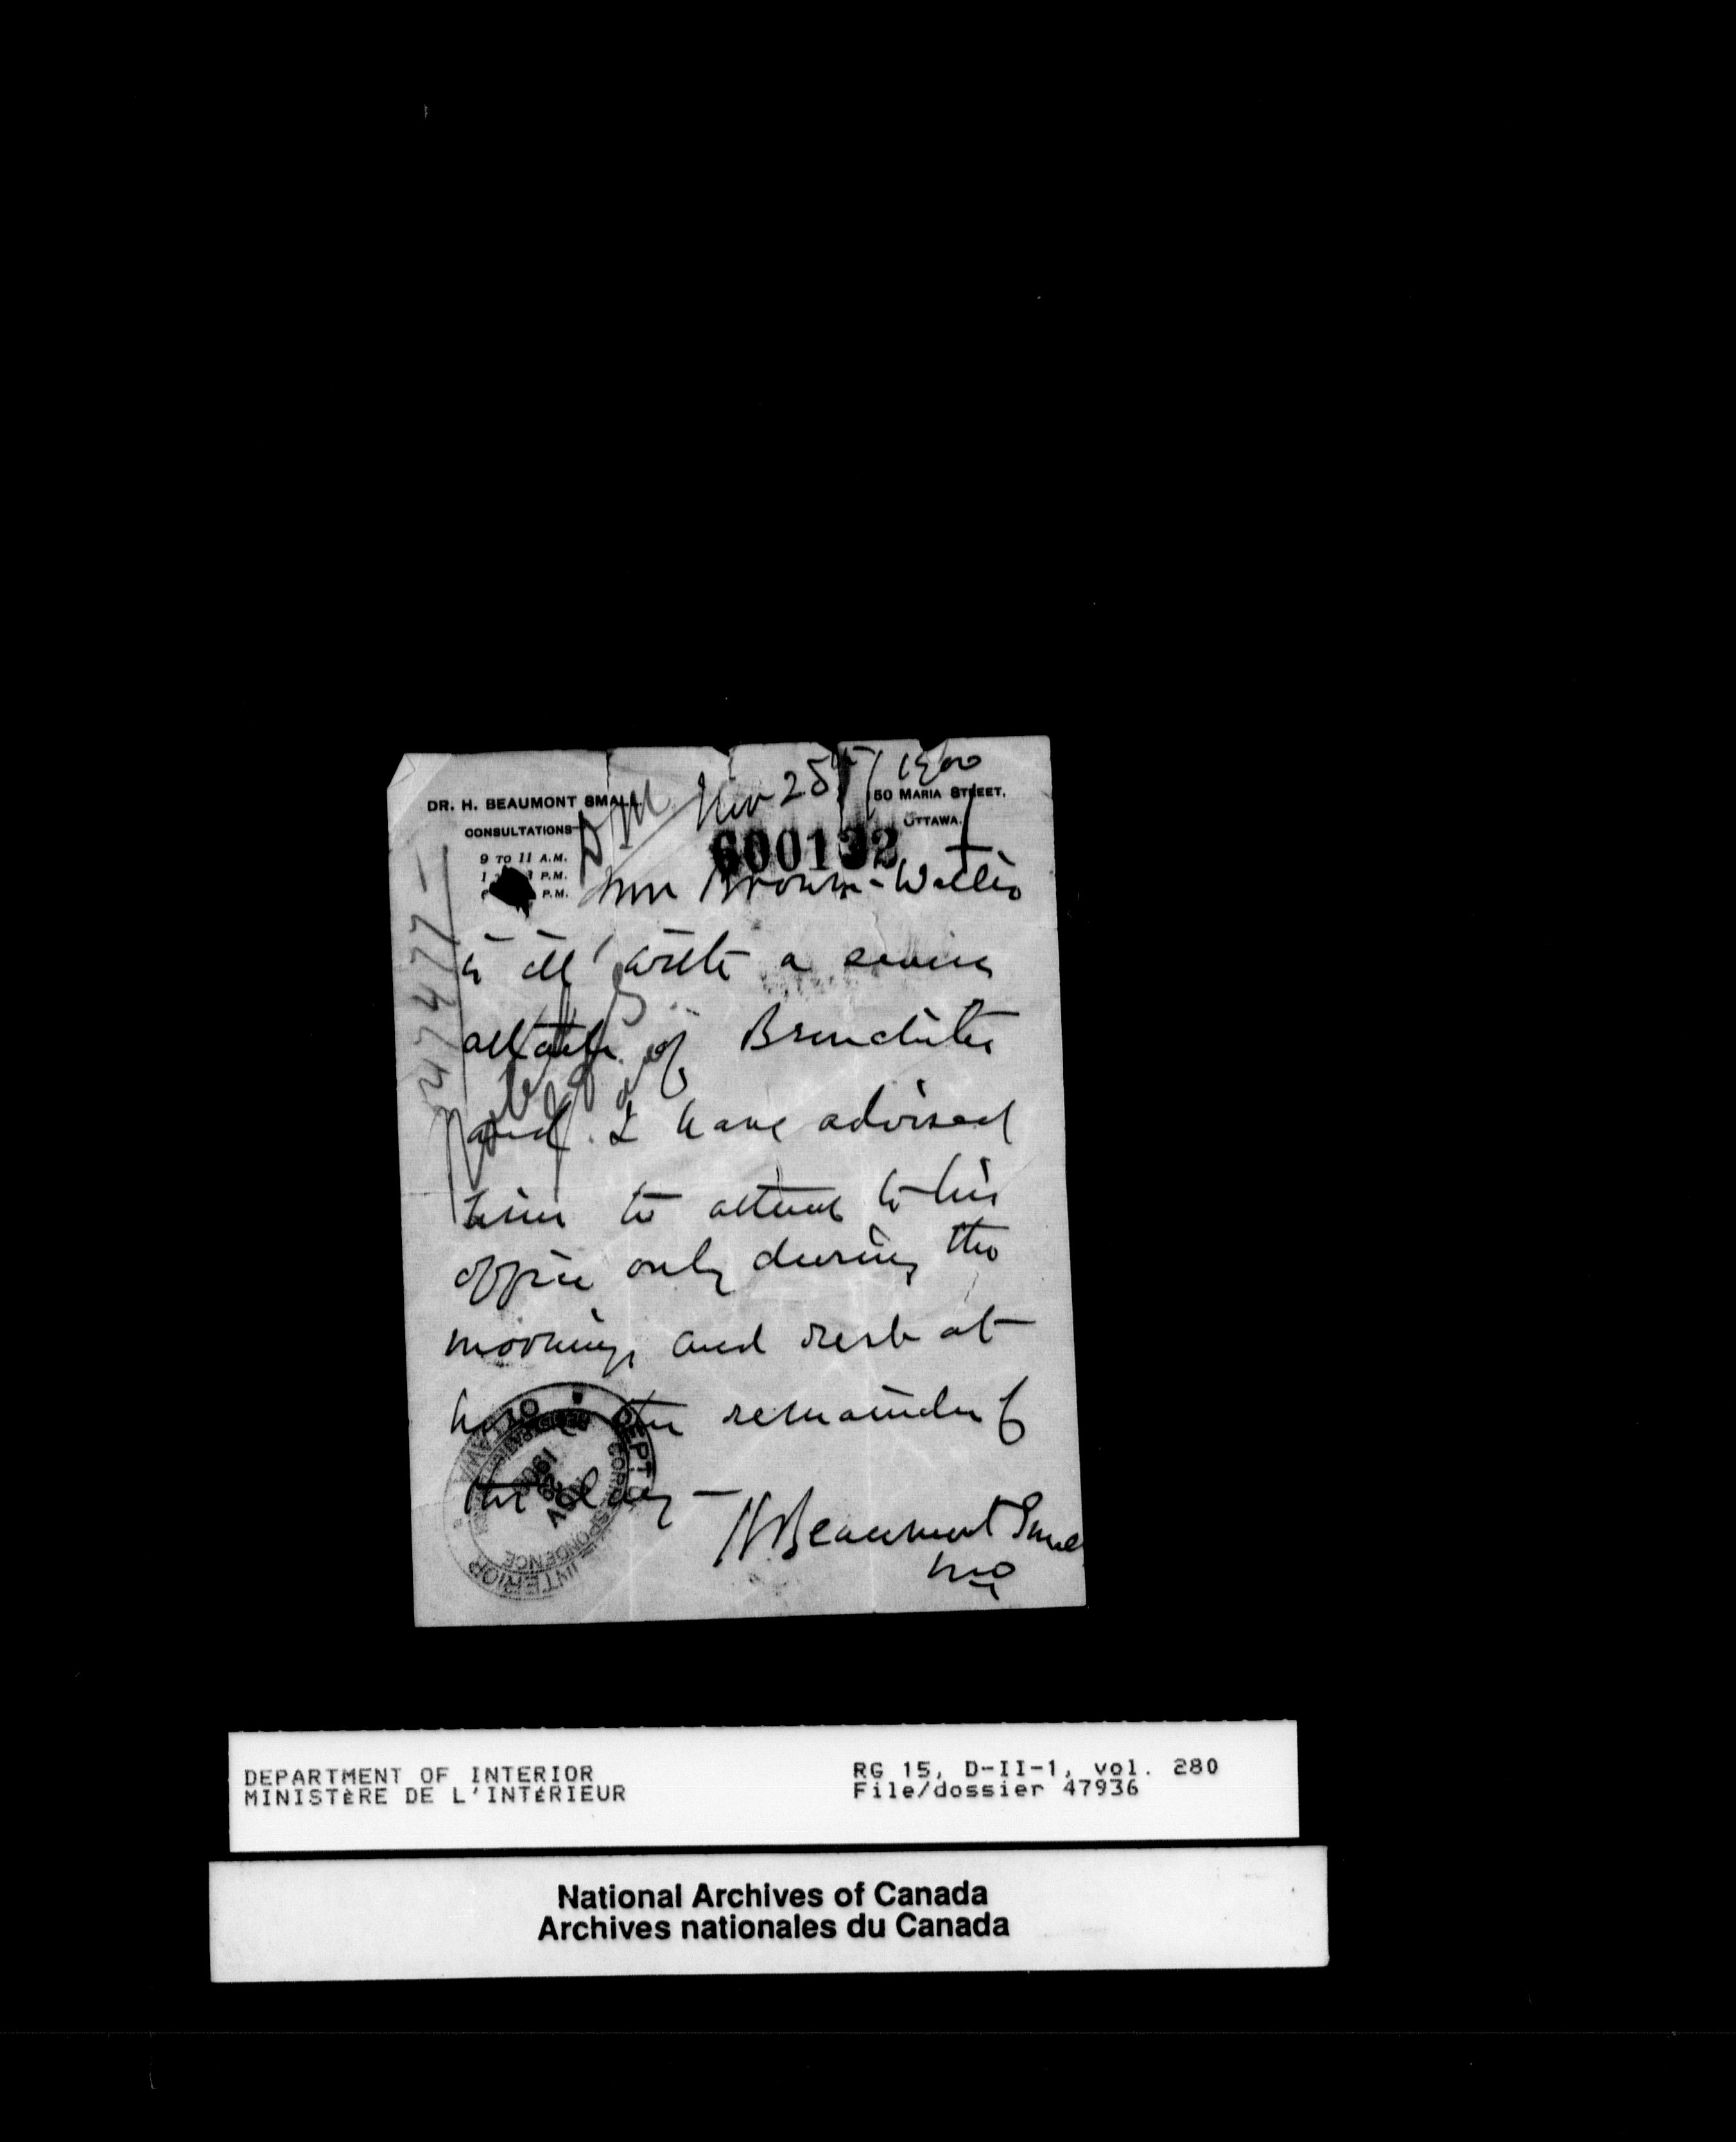 Nov 28th/1900
DR. H. BEAUMONT SMALL.
150 MARIA STREET,
OTTAWA.
CONSULTATIONS
9 TO 11 A.M.
1 3 P.M.
P.M.
600132
Mr Brown-Wallis
is ill with a severe
attack of Bronchitis
and I have advised
him to attend to his
office only during the
mornings and rest at
home the remainder of
the day —
H Beaumont Small
MD
DEPT OF INTERIOR
OTTAWA
CORRESPONDENCE
NOV
DEPARTMENT OF INTERIOR
MINISTÈRE DE L'INTÉRIEUR
RG 15, D-II-1, vol. 280
File/dossier 47936
National Archives of Canada
Archives nationales du Canada